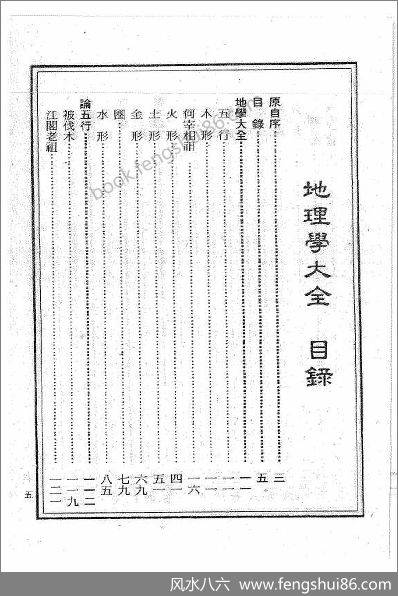 地理學大全 目錄
原自序……三
目錄……五
地學大全……一一
五行……一一
木形……一一
何宰相祖……一六
火形……四一
土形……五一
金形……六九
團……七九
水形……八五
論五行……一一二
被伐木……一一九
江閣老祖……一二一
五
book.fengshui86.com
风水八六 | www.fengshui86.com